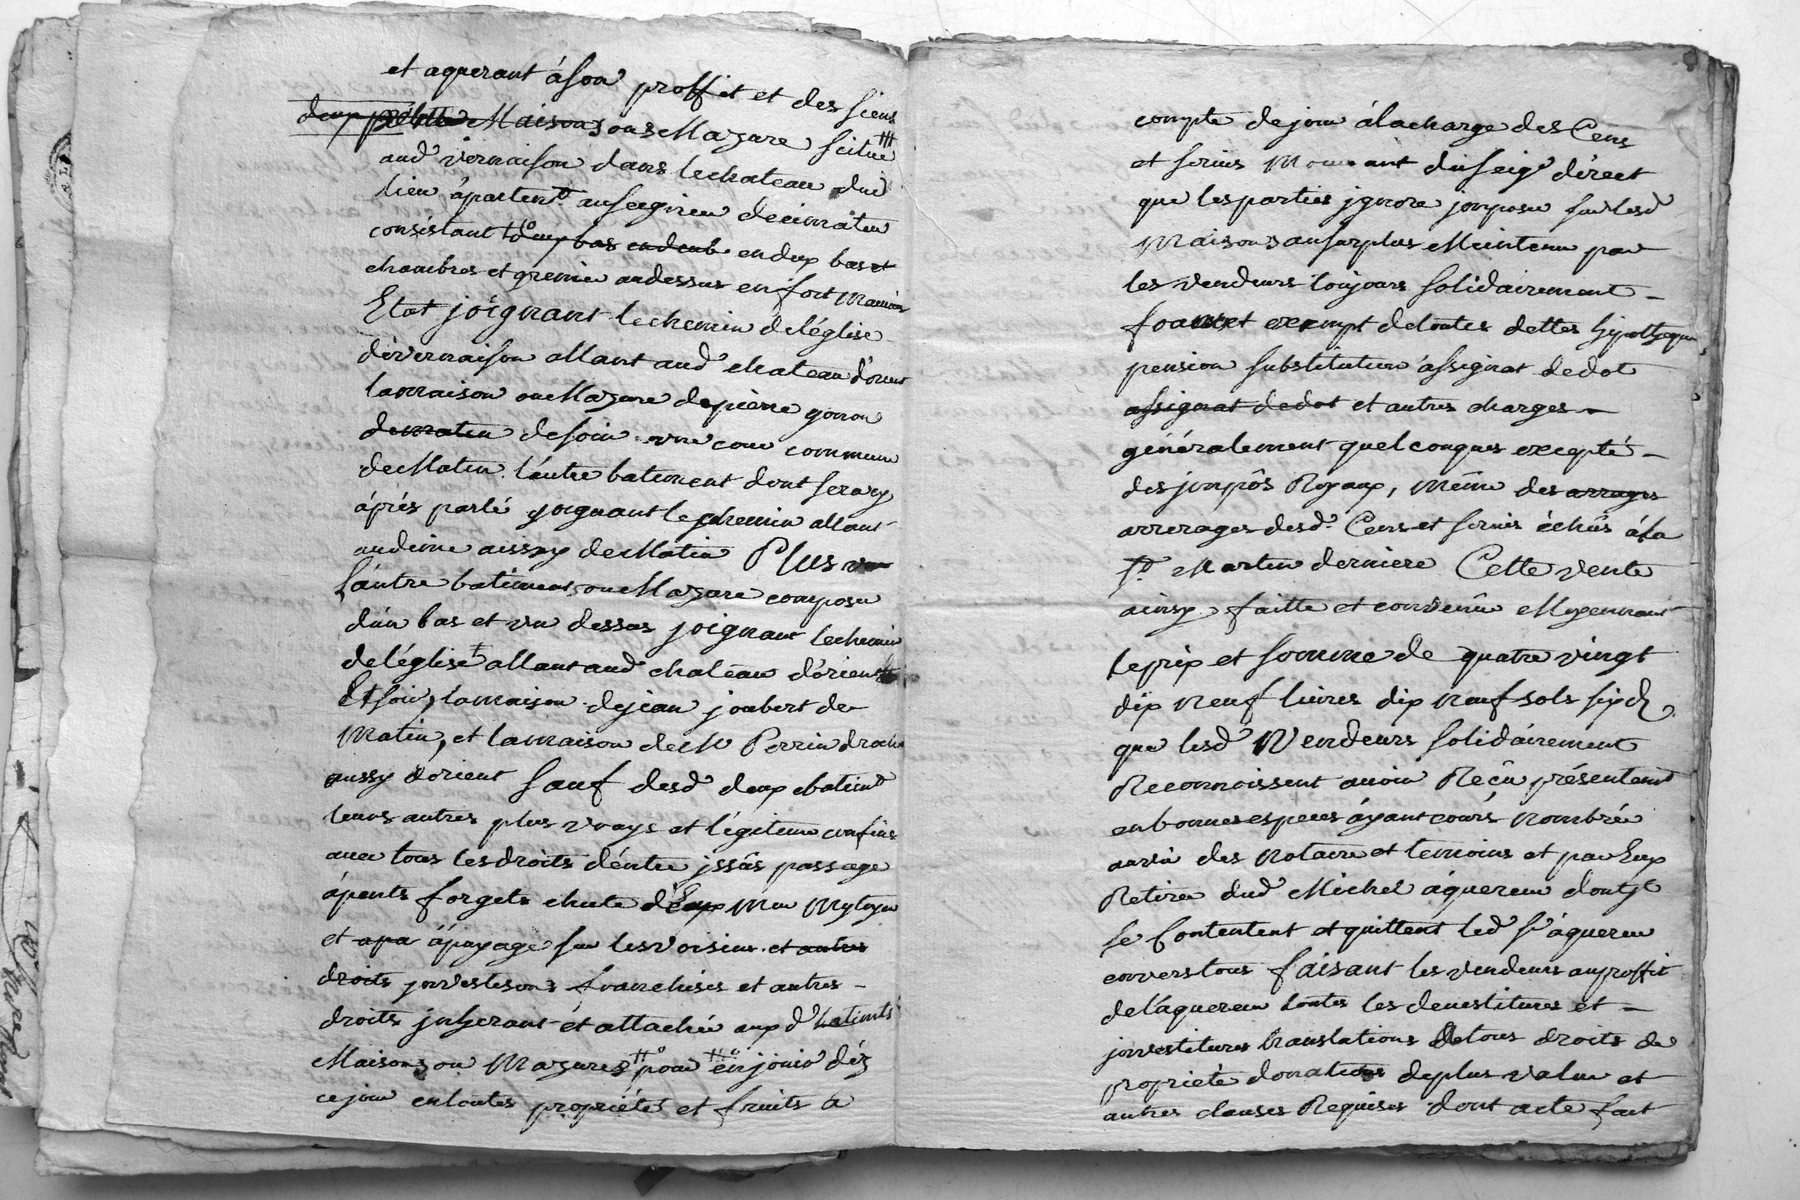 et aquerant á son proffit et des siens
deux petitte Maisons ous Mazure scitué
aud vernaison dans le chateau dud
lieu ápartent. au seigneur decimateur
consistant deux bas en deux bas et
chambres et grenier au dessus en fort mauvais
Etat joignant le chemin de l'église
de vernaison allant aud chateau d'orient
la maison ou Mazure de pierre gonon
de matin de soir une cour commune
de Matin. l'autre batiment dont sera cy
áprés parlé joignant le chemin allant
aussy de Matin Plus un
L'autre batiment ou Mazure composé
d'un bas et un dessus joignant le chemin
de l'église allant aud chateau d'orient
Et soir, la maison de jean joubert de
Matin, et la maison de M Perrin
aussy d'orient Sauf desd deux batim
leurs autres plus vrays et légitime confins
avec tous les droits d'entré jssûs passage
ápents forgets chute d'Eaux Mur Mytoyen
et apa ápayage sur les voisins et autres
droits jnvestisons franchises et autres
droits jnherant et attaché auxd batimts
Maisons ou Mazures pour en jouir déz
ce jour en toutes propriétés et fruits a
compte de jour á la charge des Cens
et servis Mouvant du seigr direct
que les parties jgnore jmposé sur lesd
Maisons au surplus Maintenu par
les vendeurs toujours solidairement
franc et exempt de toutes dettes hypotheque
pension substitution assignat de dot
assignat de dot et autres charges
généralement quelconques excepté
des jmpôs Royaux, même des arrages
arrerages desd. Cens et servis échûs á la
St Martin derniere Cette vente
ainsy faitte et convenûe Moyennant
le prix et somme de quatre vingt
dix neuf livres dix neuf sols six d
que lesd Vendeurs solidáirement
Reconnoissent avoir Reçû présentemt
en bonnes especes áyant cours Nombrée
a vûe des Notaire et temoins et par Eux
Retirée dud Michel áquereur dont jl
se Contentent et quittent led Sr áquereur
envers tous faisant les vendeurs au proffit
de l'aquereur toutes les devestitures et
jnvestitures translations de tous droits de
proprieté donations de plus value et
autres clauses Requises dont acte fait